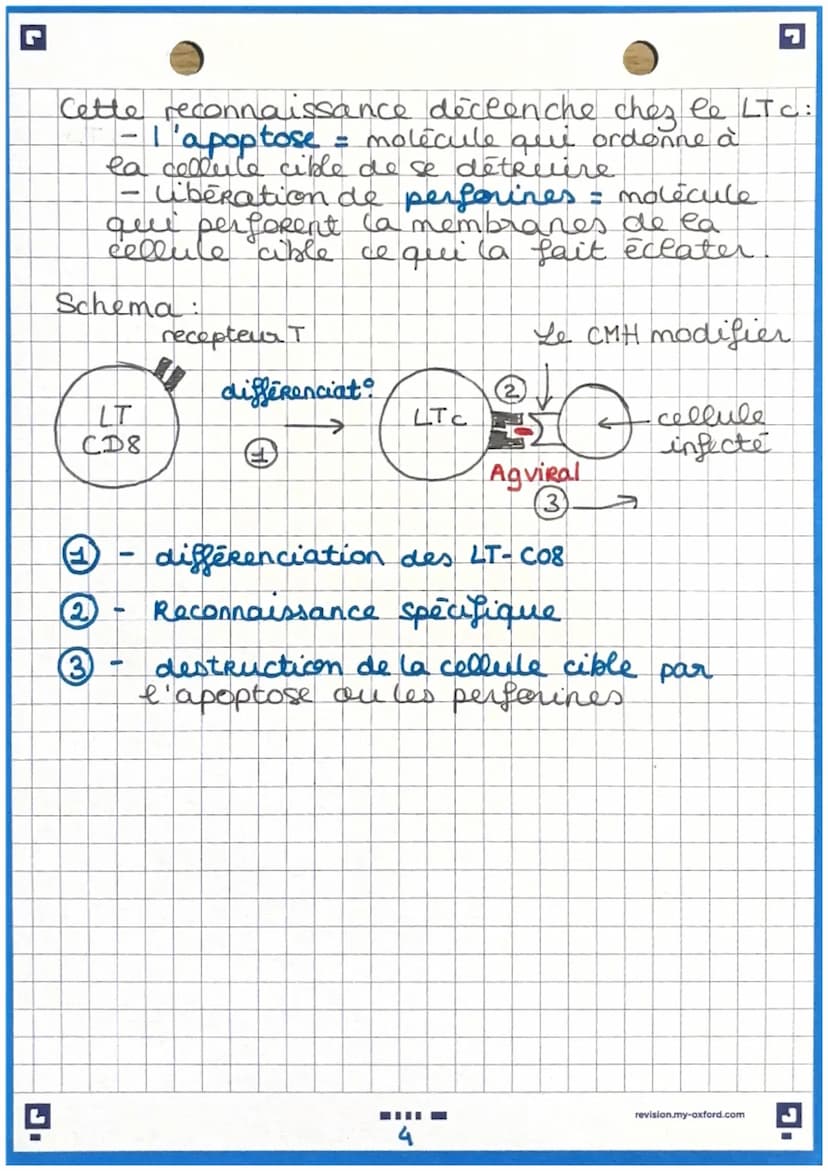 Cette reconnaissance déclenche chez le LTc :
- l'apoptose = molécule qui ordonne à
la cellule cible de se détruire
- libération de perforines = molécule
qui perforent la membranes de la
cellule cible ce qui la fait éclater.
Schema :
recepteur T
Le CMH modifier
différenciat°
2
LT
CD8
LTc
cellule
infecté
1
Ag viral
3
1 - différenciation des LT-CO8
2 - Reconnaissance spécifique
3 - destruction de la cellule cible par
l'apoptose ou les perforines
revision.my-oxford.com
4